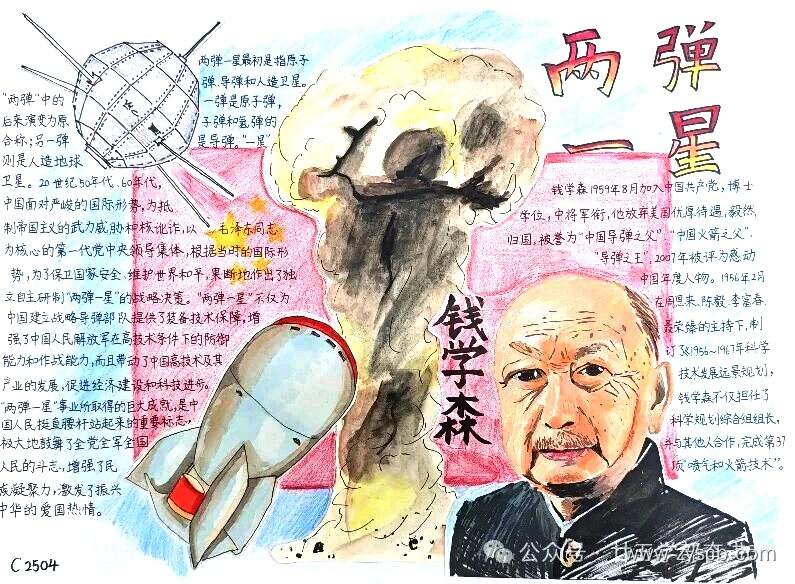 两弹
一星
两弹一星最初是指原子
弹、导弹和人造卫星。
"两弹"中的
一弹是原子弹，
后来演变为原
子弹和氢弹的
合称；另一弹
是导弹。"一星"
则是人造地球
卫星。20世纪50年代、60年代，
中国面对严峻的国际形势，为抵
制帝国主义的武力威胁和核讹诈，以 毛泽东同志
为核心的第一代党中央领导集体，根据当时的国际形
势，为了保卫国家安全、维护世界和平，果断地作出了独
立自主研制"两弹一星"的战略决策。"两弹一星"不仅为
中国建立战略导弹部队提供了装备技术保障，增
强了中国人民解放军在高技术条件下的防御
能力和作战能力，而且带动了中国高技术及其
产业的发展，促进经济建设和科技进步。
"两弹一星"事业所取得的巨大成就，是中
国人民挺直腰杆站起来的重要标志，
极大地鼓舞了全党全军全国
人民的斗志，增强了民
族凝聚力，激发了振兴
中华的爱国热情。
C2504
钱学森1959年8月加入中国共产党，博士
学位，中将军衔，他放弃美国优厚待遇，毅然
归国，被誉为"中国导弹之父"、"中国火箭之父"、
"导弹之王"，2007年被评为感动
中国年度人物。1956年2月
在周恩来、陈毅、李富春、
聂荣臻的主持下，制
订了《1956~1967年科学
技术发展远景规划，
钱学森不仅担任了
科学规划综合组组长，
并与其他人合作，完成第37
项"喷气和火箭技术"。
钱学森
公众号·
www.zysbb.com